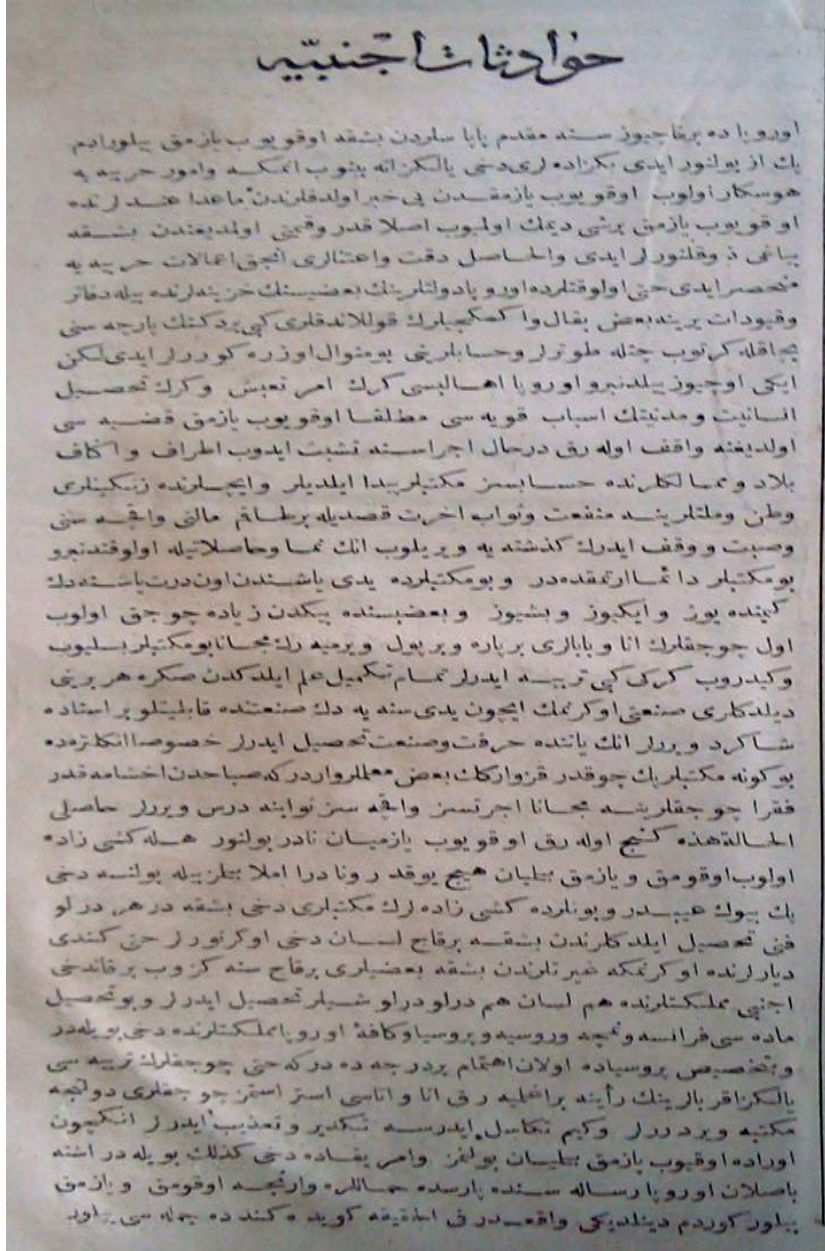 حوادثات اجنبیه
اوروپا ده برقاچیوز سنه مقدم پاپا سلردن بشقه اوقویوب یازمق بیلور ادم
پك از بولنور ایدی بكزاده لری دخی یالكز انه بنوب انمكه وامور حربیه یه
هوسكار اولوب اوقویوب یازمقدن بی خبر اولدقلرندن ماعدا عندلرنده
اوقویوب یازمق برشی دیمك اولمیوب اصلا قدر وقیمتی اولمدیغندن بشقه
بیاغی ذوقلنورلر ایدی والحاصل دقت واعتنالری انجق اعمالات حربیه یه
منحصر ایدی حتی اولوقتلرده اوروپا دولتلرینك بعضیسنك خزینه لرنده بیله دفاتر
وقیودات یرینه بعض بقال واكمكجیلرك قوللاندقلری كبی بردكنك پارچه سنی
بچاقله كرتوب چتله طوترلر وحسابلرینی بومنوال اوزره كوررلر ایدی لكن
ایكی اوچیوز ییلدنبرو اوروپا اهالیسی كرك امر تعیش وكرك تحصیل
انسانیت ومدنیتك اسباب قویه سی مطلقا اوقویوب یازمق قضیه سی
اولدیغنه واقف اوله رق درحال اجراسنه تشبث ایدوب اطراف واكناف
بلاد وممالكلرنده حسابسز مكتبلر پیدا ایلدیلر وایچلرنده زنكینلری
وطن وملتلرینه منفعت وثواب اخرت قصدیله برطاقم مالنی واقچه سنی
وصیت ووقف ایدرك كذشته یه ویریلوب انك نما وحاصلاتیله اولوقتدنبرو
بومكتبلر دائما ارتمقده در وبومكتبلرده یدی یاشندن اون درت یاشنه دك
كیمنده یوز وایكیوز وبشیوز وبعضیسنده بیكدن زیاده چوجق اولوب
اول چوجقلرك انا وبابالری برپاره وبرپول ویرمیه رك مجانا بومكتبلر بسلیوب
وكیدروب كركی كبی تربیه ایدرلر تمام تكمیل علم ایلدكدن صكره هربرینی
دیلدكلری صنعتی اوكرنمك ایچون یدی سنه یه دك صنعتنده قابلیتلو براستاده
شاكرد ویررلر انك یاننده حرفت وصنعت تحصیل ایدرلر خصوصا انكلتره ده
بوكونه مكتبلر پك چوقدر قزوار كك بعض معلملر واردركه صباحدن اخشامه قدر
فقرا چوجقلرینه مجانا اجرتسز واقچه سز ثوابنه درس ویررلر حاصلی
الحالةهذه كنج اوله رق اوقویوب یازمیان نادر بولنور هله كشی زاده
اولوب اوقومق ویازمق بیلمیان هیچ یوقدر ونادرا املا بیلمز بیله بولنسه دخی
پك بیوك عیبدر وبونلرده كشی زاده لرك مكتبلری دخی بشقه در هر درلو
فنی تحصیل ایلدكلرندن بشقه برقاچ لسان دخی اوكرنورلر حتی كندی
دیارلرنده اوكرنمكه غیرتلرندن بشقه بعضیلری برقاچ سنه كزوب برقاندخی
اجنبی مملكتلرنده هم لسان هم درلو درلو شیلر تحصیل ایدرلر وبو تحصیل
ماده سی فرانسه ونمچه وروسیه وپروسیا وكافهٔ اوروپا مملكتلرنده دخی بویله در
وبتخصیص پروسیاده اولان اهتمام بردرجه ده دركه حتی چوجقلرك تربیه سی
یالكز اقربالرینك رأینه براغلمیه رق انا واناسی استر استمز چوجقلری دولتجه
مكتبه ویردررلر وكیم تكاسل ایدرسه تكدیر وتعذیب ایدرلر انكچون
اوراده اوقیوب یازمق بیلمیان بولنمز وامریقاده دخی كذلك بویله در اشته
باصلان اوروپا رساله سنده پارسده حماللره وارنجه اوقومق ویازمق
بیلور كوردم دینلدیكی واقعدر فی الحقیقه كویده كنده جمله سی بیلور